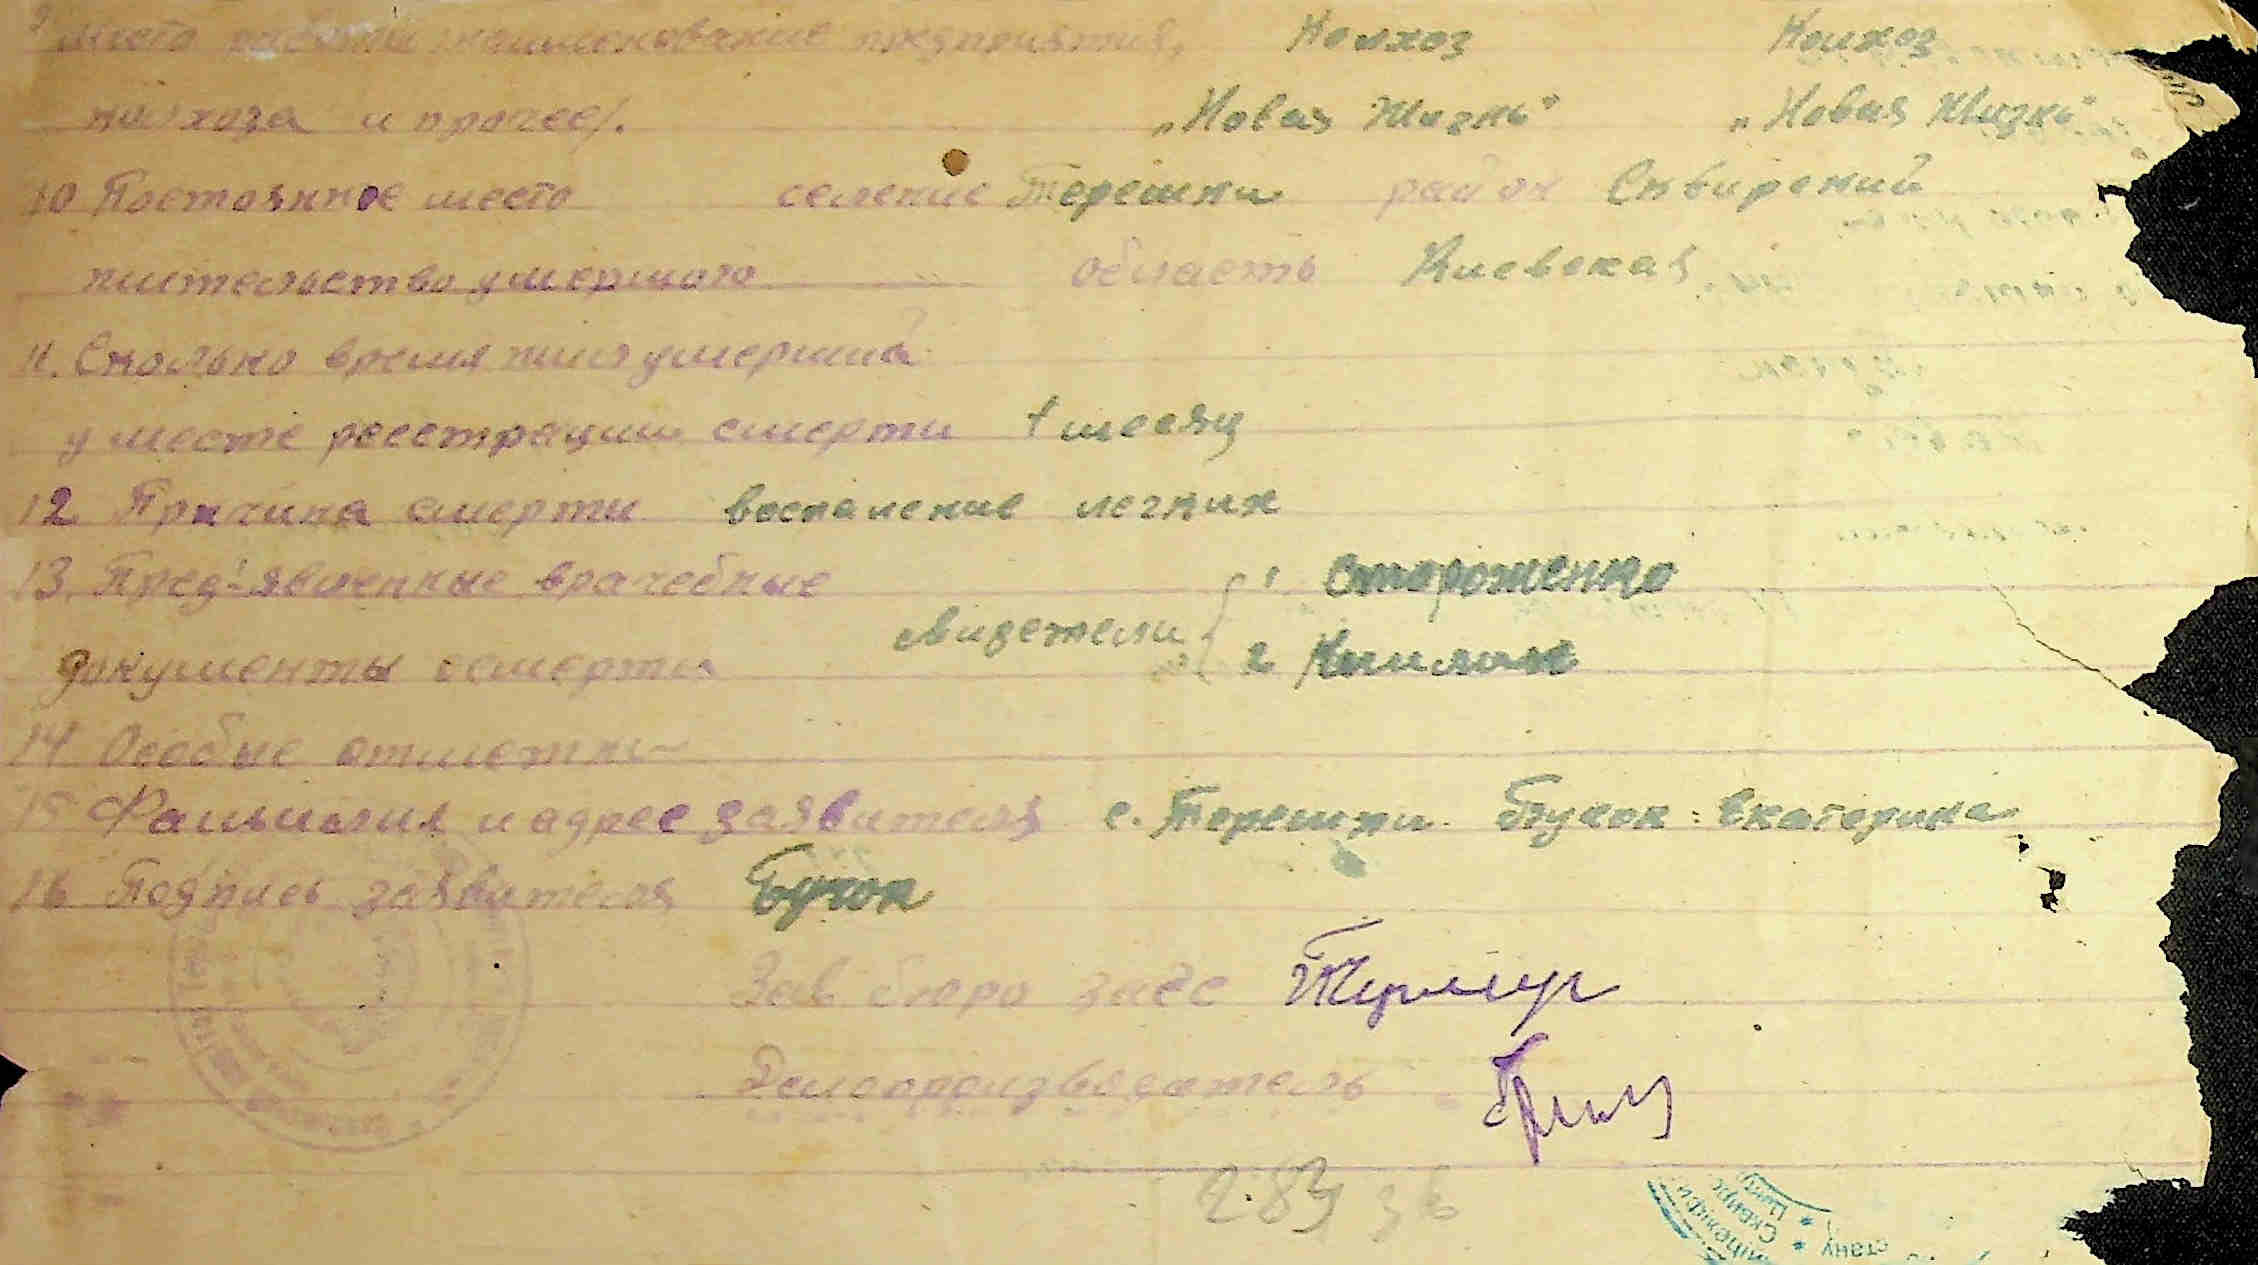 9 Место работы /наименование предприятия, Колхоз Колхоз
колхоза и прочее/. „Новая Жизнь" „Новая Жизнь"
10 Постоянное место селение Терешки район Сквирский
жительство умершого область Киевская
11. Сколько время жил умерший
у месте реестрации смерти 1 месяц
12 Причина смерти воспаление легких
13. Пред'явленные врачебные 1. Стороженко
свидетели
документы осмерти 2
14 Особые отметки –
15 Фамилия и адрес заявителя с. Терешки Екатерина
16 Подпись заявителя
Зав бюро загс
Делопроизводитель
283 зв